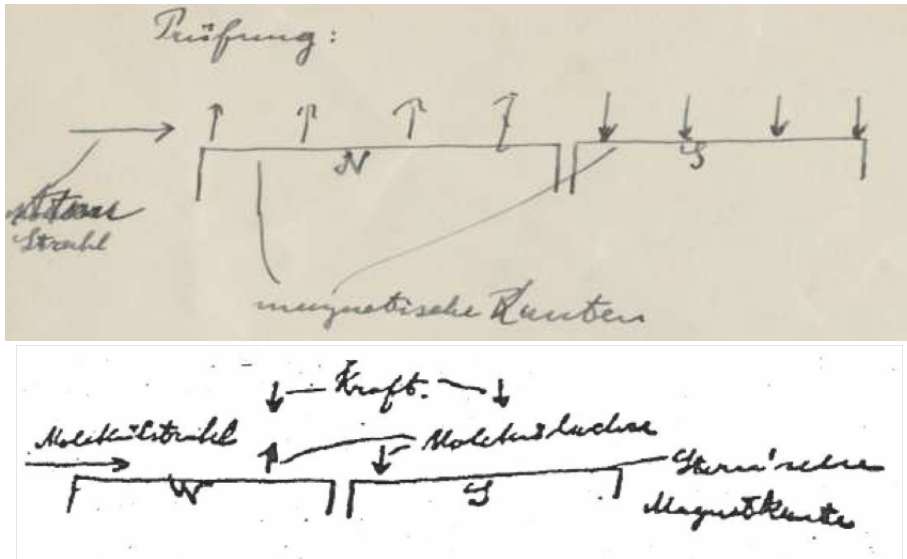 Prüfung:
N
S
Strahl
magnetische Kanten
Kraft.
Molekülstrahl
Molekülachse
N
S
Stern'sche
Magnetkante